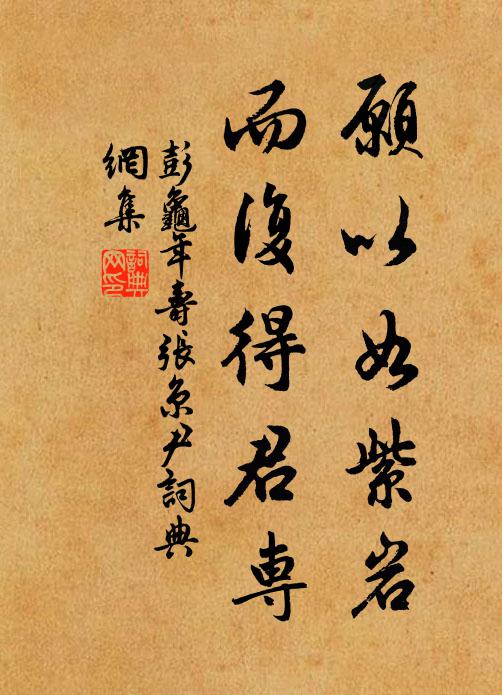 願以如紫岩
而復得君専
彭龜年壽張京尹詞典
網集
詞典
网印